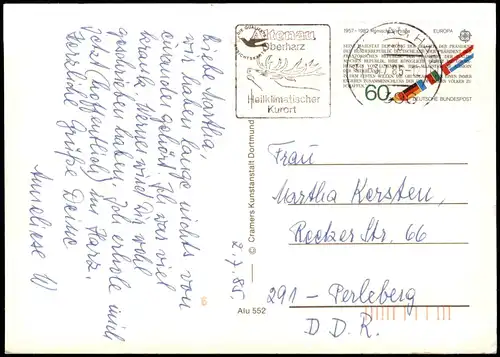 Liebe Martha,
wir haben lange nichts von
einander gehört. Ich war viel
krank. Irene wird Dir wohl
geschrieben haben. Ich erhole mich
jetzt (hoffentlich) im Harz.
Herzliche Grüße Deine
Anneliese W
2.7.85.
Altenau
Oberharz
Heilklimatischer
Kurort
1957-1982 Römische Verträge EUROPA
60
DEUTSCHE BUNDESPOST
© Cramers Kunstanstalt Dortmund
Alu 552
Frau
Martha Kersten,
Rocker Str. 66
291 - Perleberg
D D.R.